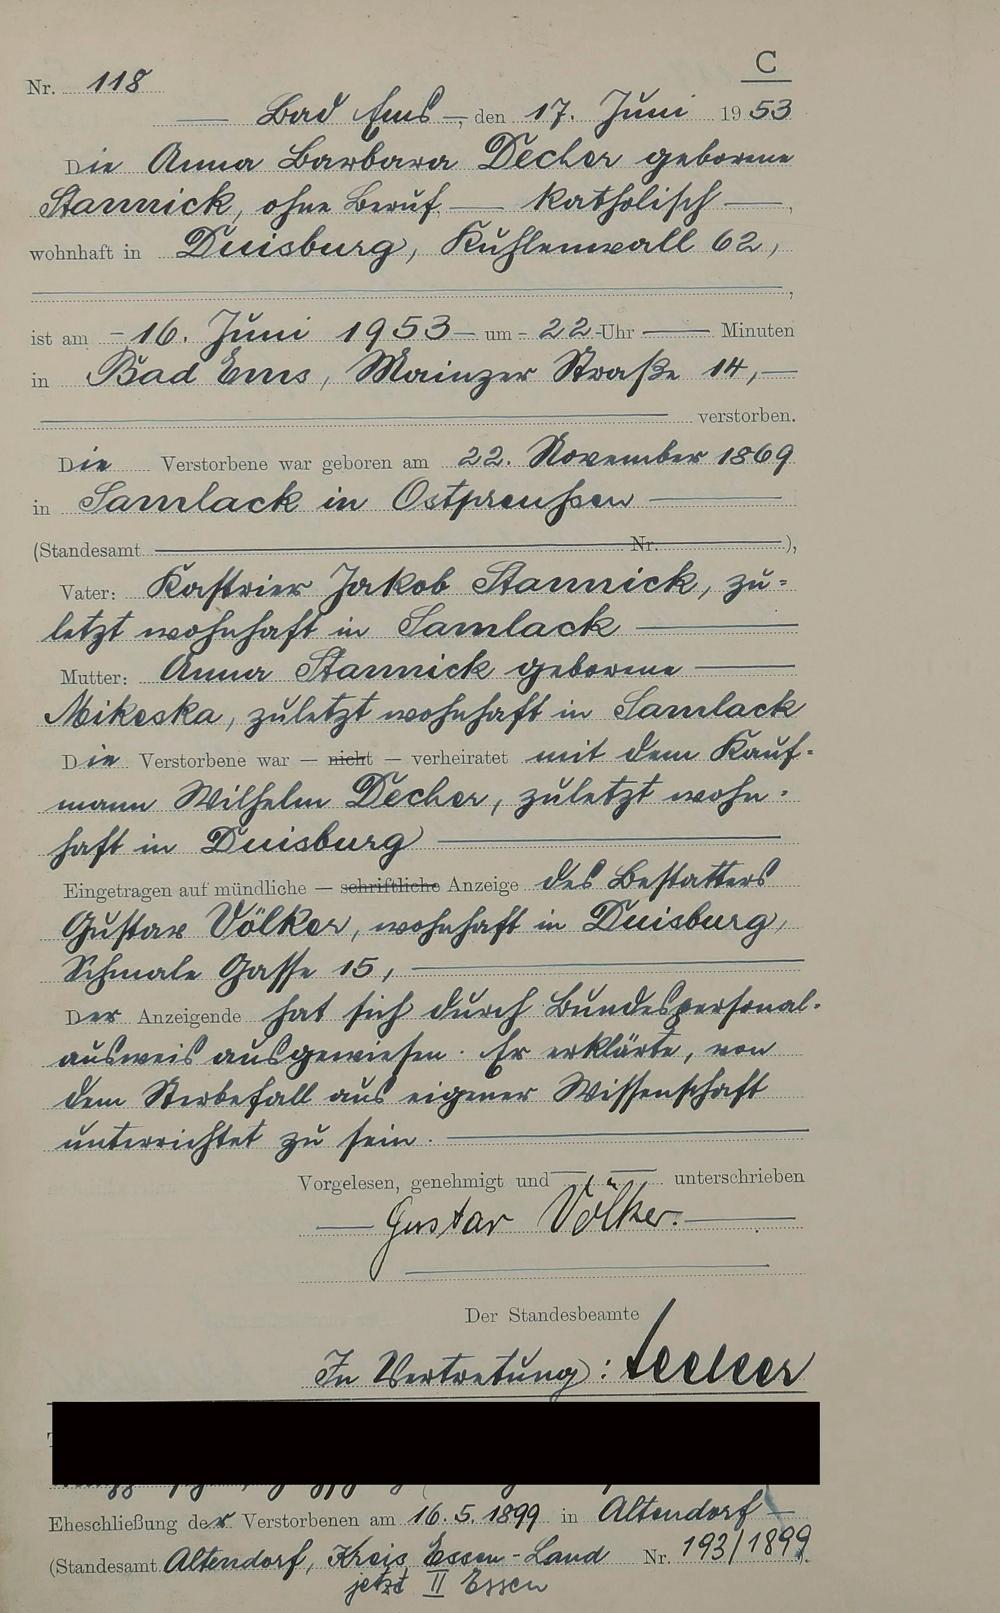 C
Nr. 118
Bad Ems, den 17. Juni 1953
Die Anna Barbara Decher geborene
Stannick, ohne Beruf — katholisch —,
wohnhaft in Duisburg, Kuhlenwall 62,
ist am - 16. Juni 1953 - um - 22 - Uhr — Minuten
in Bad Ems, Mainzer Straße 14, —
verstorben.
Die Verstorbene war geboren am 22. November 1869
in Samlack in Ostpreußen —
(Standesamt — Nr. —),
Vater: Jakob Stannick, zu=
letzt wohnhaft in Samlack —
Mutter: Anna Stannick geborene —
Mikoska, zuletzt wohnhaft in Samlack
Die Verstorbene war — nicht — verheiratet mit dem Kauf-
mann Wilhelm Decher, zuletzt wohn-
haft in Duisburg —
Eingetragen auf mündliche — schriftliche Anzeige des Bestatters
Gustav Völker, wohnhaft in Duisburg,
Schmale Gasse 15, —
Der Anzeigende hat sich durch Bundespersonal-
ausweis ausgewiesen. Er erklärte, von
dem Sterbefall aus eigener Wissenschaft
unterrichtet zu sein. —
Vorgelesen, genehmigt und — — unterschrieben
— Gustav Völker. —
Der Standesbeamte
In Vertretung:
Eheschließung der Verstorbenen am 16.5.1899 in Altendorf —
(Standesamt Altendorf, Kreis Essen-Land Nr. 193/1899).
jetzt II Essen